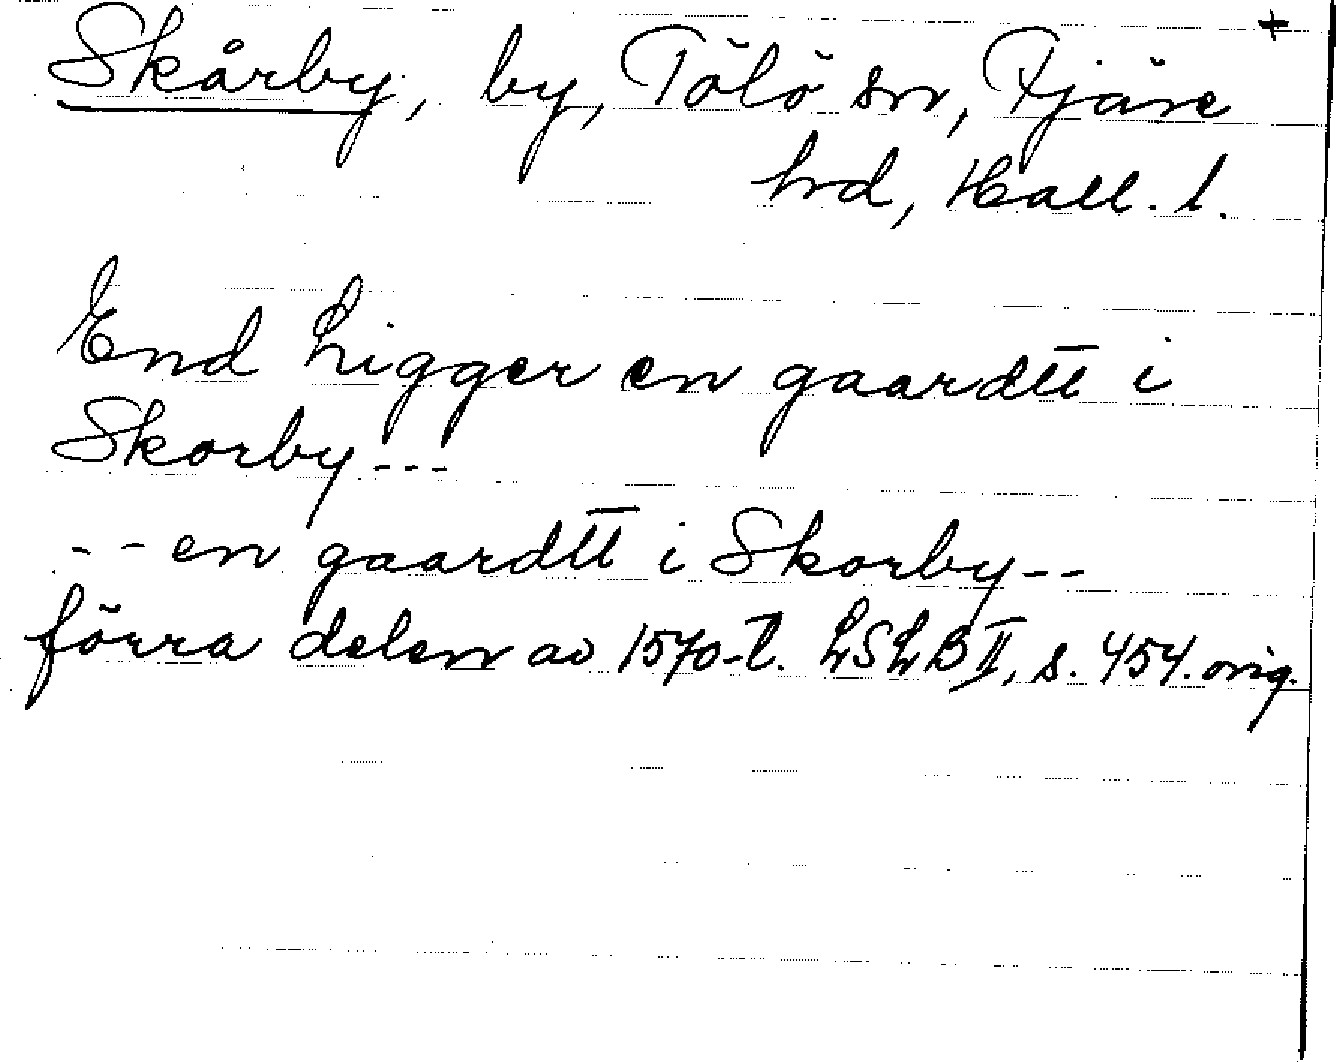 +
Skårby, by, Tölö sn, Fjäre
hd, Hall. l.
End Ligger en gaardtt i
Skorby---
--en gaardtt i Skorby--
förra delen av 1570-t. LSLB II, s. 454. orig.